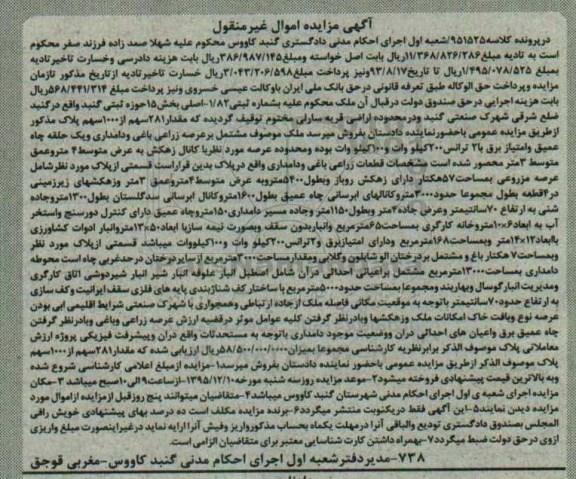 آگهی مزایده اموال غیرمنقول
درپرونده کلاسه۹۵۱۵۲۵/شعبه اول اجرای احکام مدنی دادگستری گنبد کاووس محکوم علیه شهلا صمد زاده فرزند صفر محکوم
است به تادیه مبلغ۱۱/۳۶۸/۸۲۶/۲۸۶ریال بابت اصل خواسته ومبلغ۳۸۶/۹۸۷/۱۴۵ریال بابت هزینه دادرسی وخسارت تاخیرتادیه
بمبلغ ۱/۴۹۵/۰۷۸/۵۲۵ریال تا تاریخ۹۳/۸/۱۷ونیز پرداخت مبلغ۳/۰۴۳/۲۰۶/۵۹۸ریال خسارت تاخیرتادیه ازتاریخ مذکور تازمان
مزایده وپرداخت حق الوکاله طبق تعرفه قانونی درحق بانک ملی ایران باوکالت عیسی خسروی ونیز پرداخت مبلغ ۵۶۸/۴۴۱/۳۱۴ریال
بابت هزینه اجرایی درحق صندوق دولت درقبال آن ملک محکوم علیه بشماره ثبتی۱/۸۲-اصلی بخش۱۵حوزه ثبتی گنبد واقع درگنبد
ضلع شرقی شهرک صنعتی گنبد ودرمحدوده اراضی قریه سارلی مختوم توقیف گردیده که مقدار۲۸۱سهم از۱۰۰۰سهم پلاک مذکور
ازطریق مزایده عمومی باحضورنماینده دادستان بفروش میرسد ملک موصوف مشتمل برعرصه زراعی باغی ودامداری ویک حلقه چاه
عمیق وامتیاز برق با۲ ترانس۲۰۰کیلو وات و۱۰۰کیلو وات بوده ومحدوده عرصه مورد نظربا کانال زهکش به عرض متوسط۴ متروعمق
متوسط ۳متر محصور شده است مشخصات قطعات زراعی باغی ودامداری واقع درپلاک بدین قراراست قسمتی ازپلاک مورد نظرشامل
عرصه مزروعی بمساحت۵۷هکتار دارای زهکش روباز وبطول۵۴۰۰متروبه عرض متوسط۴متروعمق ۳متر وزهکشهای زیرزمینی
در۴قطعه بطول مجموعا حدود۳۰۰۰متروکانالهای ابرسانی چاه عمیق بطول۱۶۰۰متروکانال ابرسانی سدگلستان بطول۱۳۰۰متروجاده
شنی به ارتفاع ۷۰سانتیمتر وعرض جاده۴متر وبطول۱۱۵۰متر وجاده مسیر دامداری۱۵۰متروچاه عمیق دارای کنترل دورسنج واستخر
آب به ابعاد۶×۱۰متروخانه کارگری بمساحت۶۵مترمربع وانباربدون سقف وبصورت نیمه سازبا ابعاد۵۰×۱۳متروانبار ادوات کشاورزی
باابعاد۱۲×۱۴متر وبمساحت۱۶۸مترمربع ودارای امتیازبرق و۲ترانس۲۰۰کیلو وات و۱۰۰کیلووات میباشد قسمتی ازپلاک مورد نظر
وبمساحت۷ هکتار باغ و مشتمل بردرختان الو شابلون وگلابی ومقدارمساحت۳۰۰۰مترمربع ازسایردرختان درحدغربی چاه است محوطه
دامداری بمساحت۱۳۰۰۰مترمربع مشتمل براعیانی احداثی درآن شامل اصطبل انبار علوفه انبار شیر انبار شیردوشی اتاق کارگری
ومدیریت انبارگوسال وبهاربند ومجموعا بمساحت حدود۵۰۰۰مترمربع با ساختار کف شناژبندی پایه های فلزی سقف ایرانیت وکف سازی
به ارتفاع حدود۷۰سانتیمتر باتوجه به موقعیت مکانی فاصله ملک ازجاده ارتباطی وهمجواری با شهرک صنعتی شرایط اقلیمی ابی بودن
عرصه نوع وبافت خاک امکانات ملک وزهکشها وبادرنظر گرفتن کلیه عوامل موثر درقضیه ارزش عرصه زراعی وباغی وبادرنظر گرفتن
چاه عمیق برق واعیان های احداثی دران ووضعیت موجود دامداری باتوجه به مستحدثات واقع دران وپیشرفت فیزیکی پروژه ارزش
معاملاتی پلاک موصوف الذکر برابرنظریه کارشناسی مجموعا بمیزان۵۸/۵۰۰/۰۰۰/۰۰۰ریال ارزیابی شده که مقدار۲۸۱سهم از۱۰۰۰سهم
پلاک موصوف الذکر ازطریق مزایده عمومی باحضور نماینده دادستان بفروش میرسد۱-مزایده ازمبلغ اعلامی کارشناسی شروع شده
وبه بالاترین قیمت پیشنهادی فروخته میشود۲-موعد مزایده روزسه شنبه مورخه۱۳۹۵/۱۲/۱۰-ازساعت۹الی۱۰صبح میباشد ۳-مکان
مزایده اجرای شعبه ی اول اجرای احکام مدنی شهرستان گنبد کاووس میباشد۴-متقاضیان میتوانند پنج روزقبل ازمزایده ازاموال مورد
مزایده دیدن نمایند۵-این آگهی فقط دریکنوبت منتشر میگردد۶-برنده مزایده مکلف است ده درصد بهای پیشنهادی خویش رافی
المجلس بصندوق دادگستری تودیع والباقی آنرا درمهلت یکماه بحساب مذکورواریز وفیش آنرا ارایه نماید درغیراینصورت مبلغ واریزی
ازوی درحق دولت ضبط میگردد۷-بهمراه داشتن کارت شناسایی معتبر برای متقاضیان الزامی است.
۷۳۸-مدیردفترشعبه اول اجرای احکام مدنی گنبد کاووس-مغربی قوجق